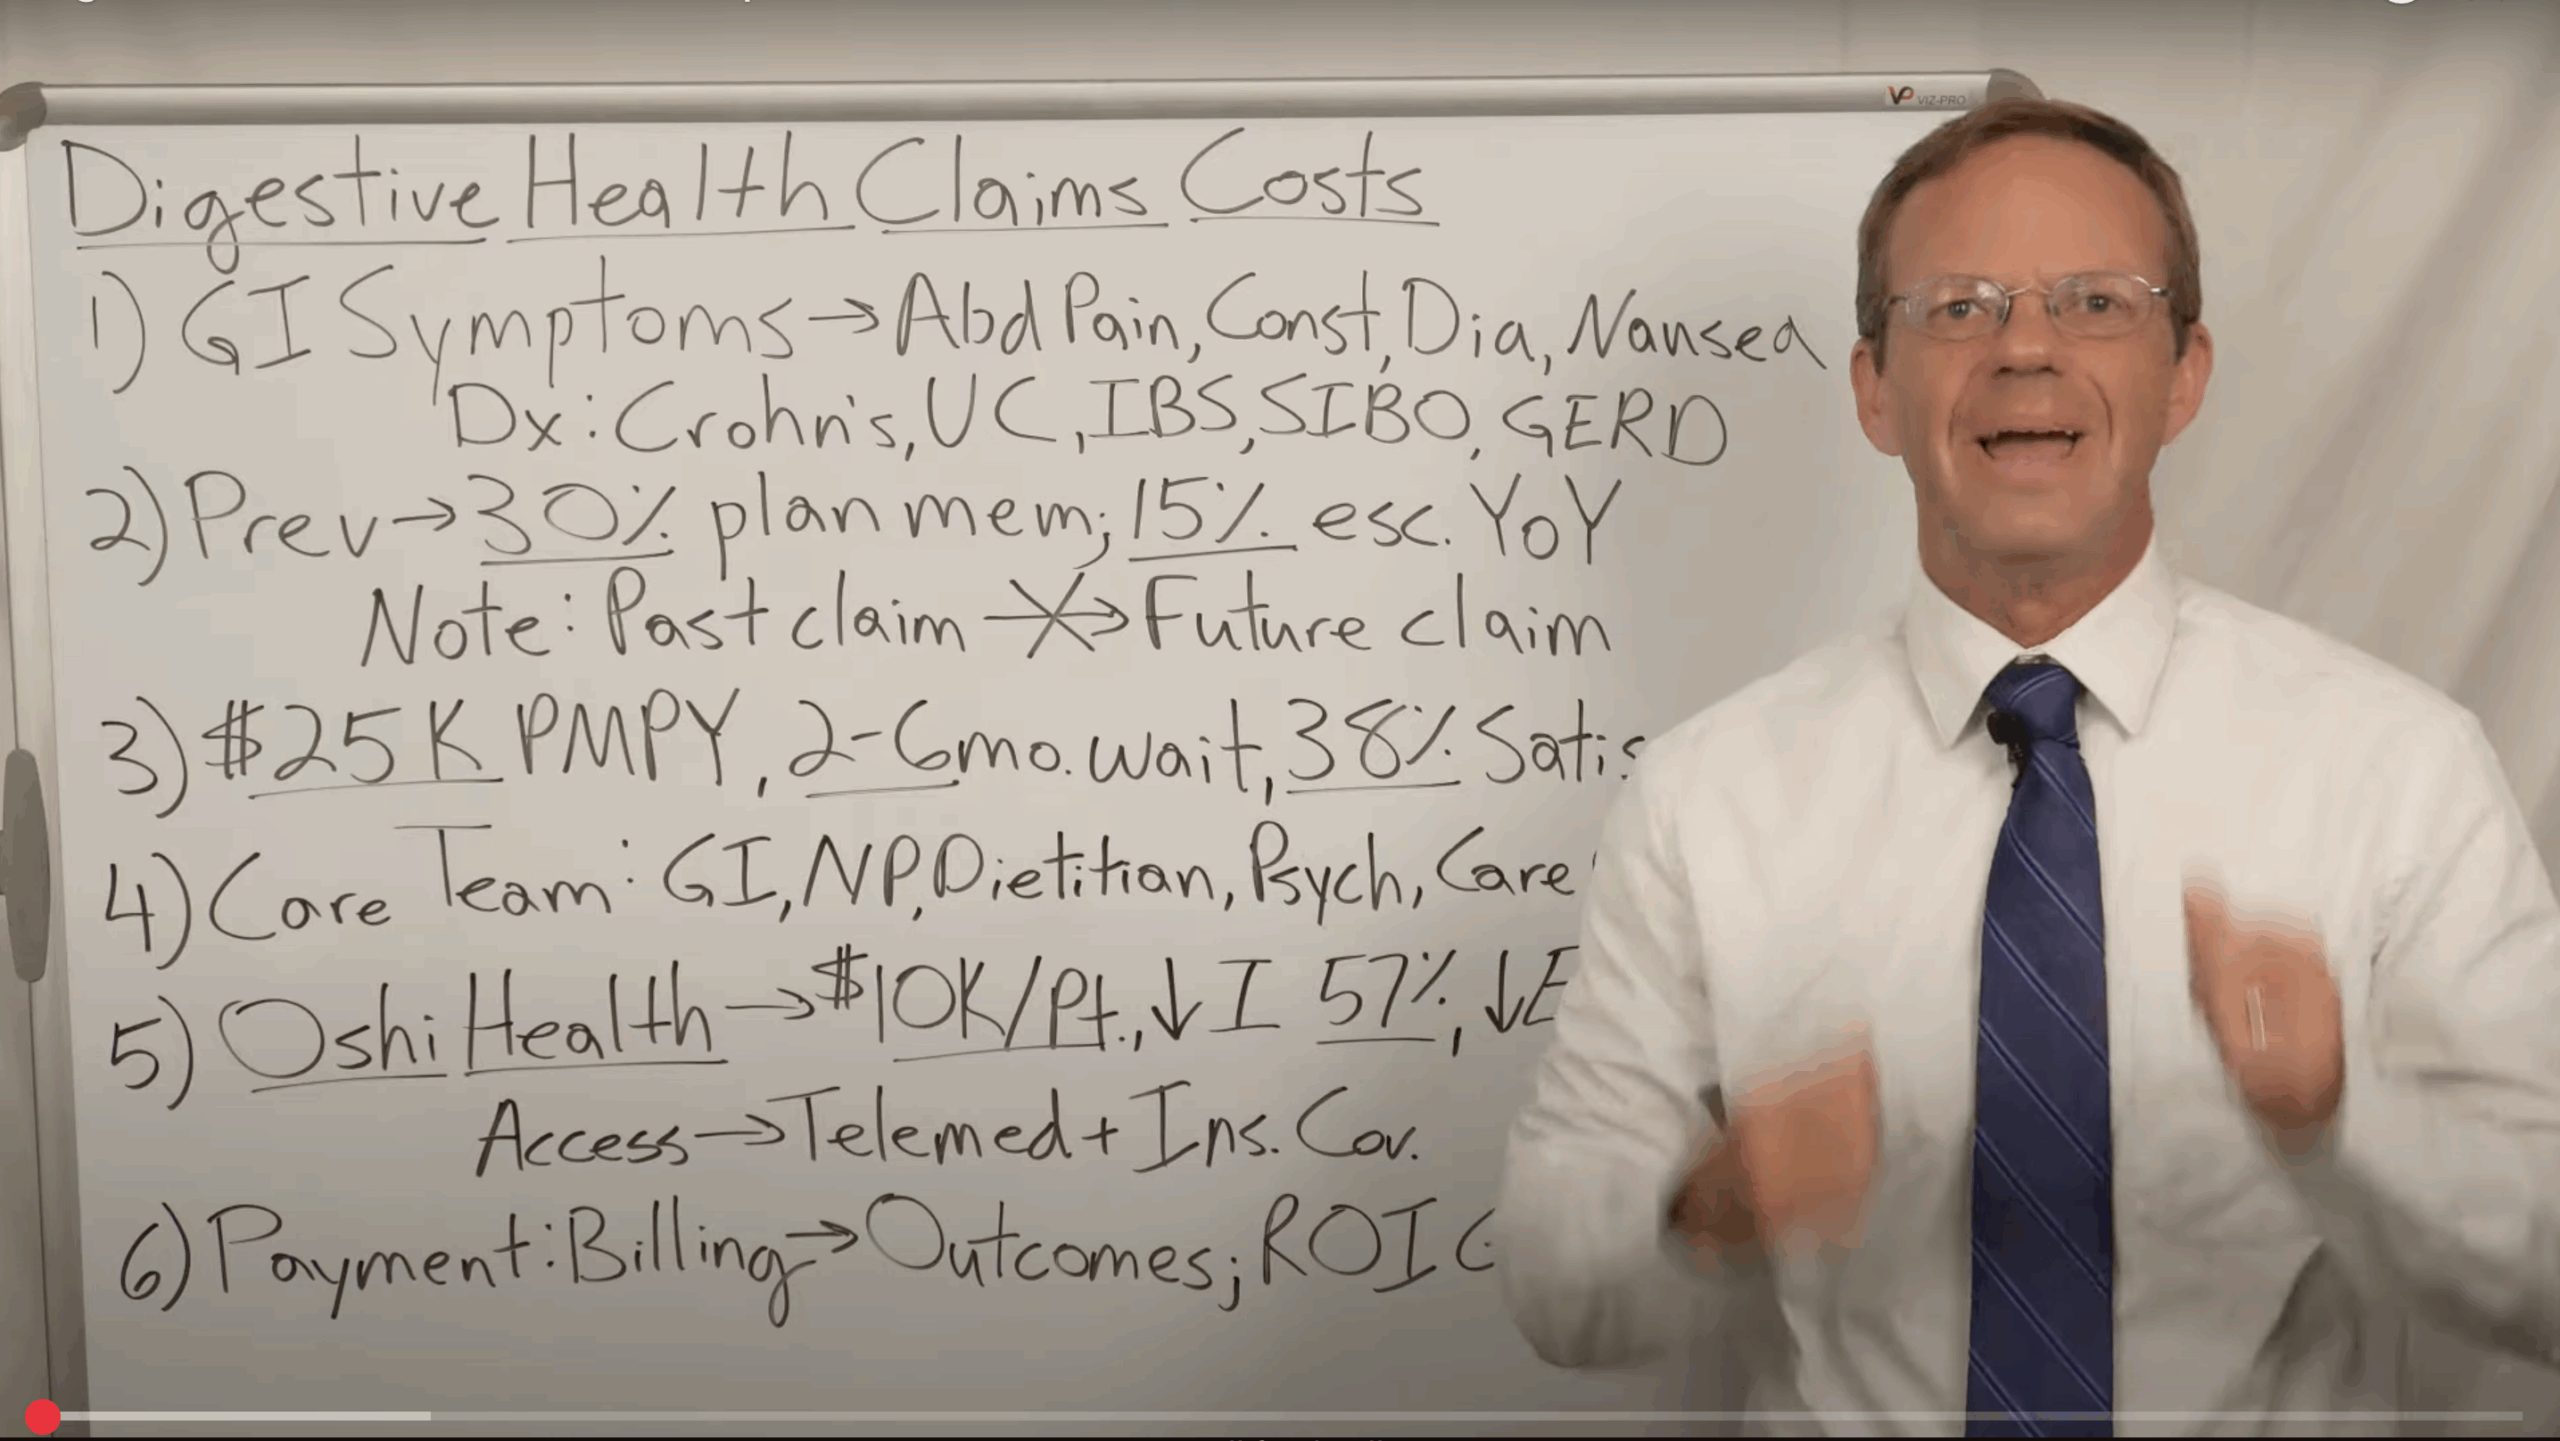 VP VIZ-PRO
Digestive Health Claims Costs
1) GI Symptoms → Abd Pain, Const, Dia, Nausea
Dx: Crohn's, UC, IBS, SIBO, GERD
2) Prev → 30% plan mem; 15% esc. YoY
Note: Past claim → Future claim
3) $25K PMPY, 2-6mo. wait, 38% Satis
4) Care Team: GI, NP, Dietitian, Psych, Care
5) Oshi Health → $10K/Pt., ↓ I 57%, ↓E
Access → Telemed + Ins. Cov.
6) Payment: Billing → Outcomes; ROI